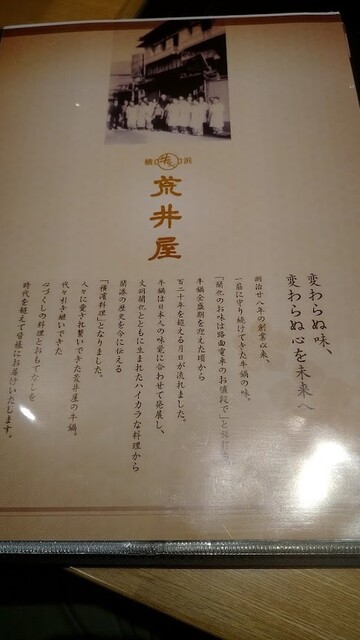 横浜
荒井屋
変わらぬ味、
変わらぬ心を未来へ
明治廿八年の創業以来、
一筋に守り続けてきた牛鍋の味。
「開化のお味は路面電車のお値段で」と
牛鍋全盛期を迎えた頃から
百二十年を超える月日が流れました。
牛鍋は日本人の味覚に合わせて発展し、
文明開化とともに生まれたハイカラな料理から
開港の歴史を今に伝える
「横濱料理」となりました。
人々に愛され賛いできた荒井屋の牛鍋。
代々引き継いできた
心づくしの料理とおもてなしを
時代を超えて皆様にお届けいたします。